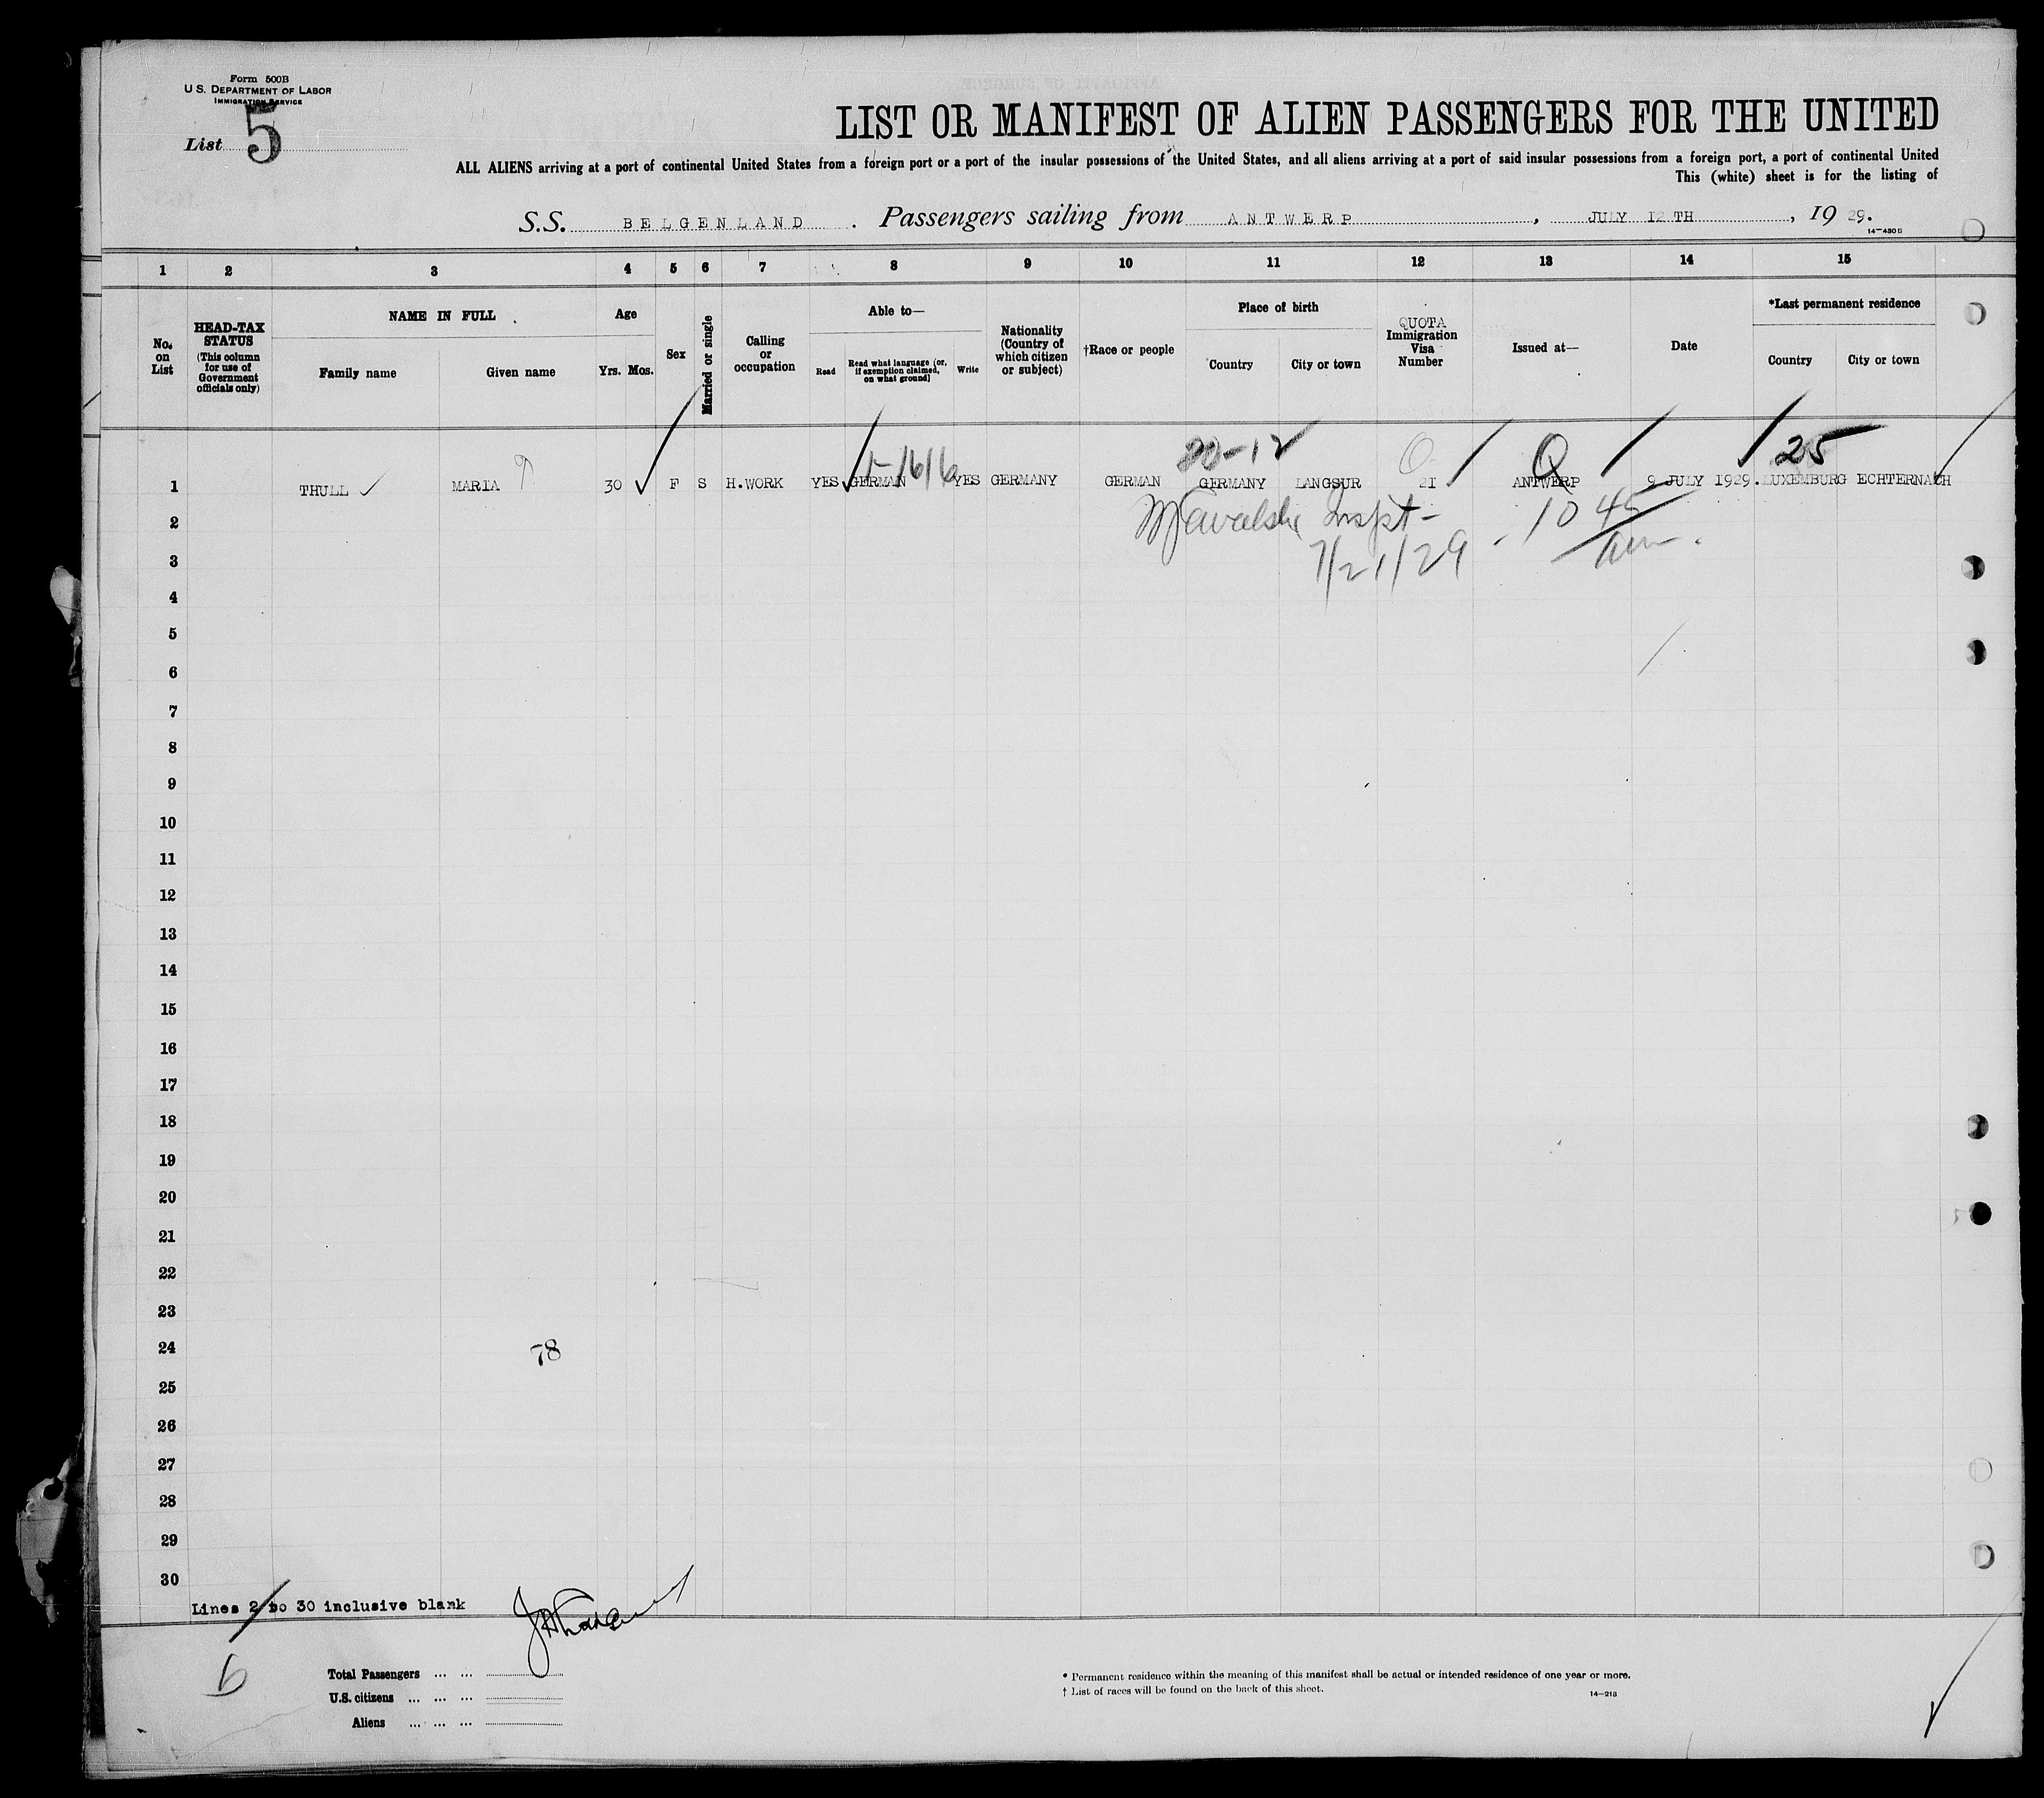 Form 500B
U. S. DEPARTMENT OF LABOR
IMMIGRATION SERVICE
List 5
LIST OR MANIFEST OF ALIEN PASSENGERS FOR THE UNITED
ALL ALIENS arriving at a port of continental United States from a foreign port or a port of the insular possessions of the United States, and all aliens arriving at a port of said insular possessions from a foreign port, a port of continental United
This (white) sheet is for the listing of
S.S. BELGENLAND. Passengers sailing from ANTWERP, JULY 12 TH, 19 29.
14—430B
1 2 3 4 5 6 7 8 9 10 11 12 13 14 15
No. on List
HEAD-TAX STATUS (This column for use of Government officials only)
NAME IN FULL
Family name Given name
Age
Yrs. Mos.
Sex
Married or single
Calling or occupation
Able to—
Read
Read what language (or, if exemption claimed, on what ground)
Write
Nationality (Country of which citizen or subject)
†Race or people
Place of birth
Country City or town
QUOTA Immigration Visa Number
Issued at—
Date
*Last permanent residence
Country City or town
20-12 Q 25
1 THULL MARIA 30 F S H.WORK YES GERMAN YES GERMANY GERMAN GERMANY LANGSUR 21 ANTWERP 9 JULY 1929. LUXEMBURG ECHTERNACH
2 Inspt - 10 45
3 7/21/29
4
5
6
7
8
9
10
11
12
13
14
15
16
17
18
19
20
21
22
23
24 78
25
26
27
28
29
30
Lines 2 to 30 inclusive blank
6
Total Passengers ... ...
U.S. citizens ... ... ...
Aliens ... ... ...
* Permanent residence within the meaning of this manifest shall be actual or intended residence of one year or more.
† List of races will be found on the back of this sheet.
14—213